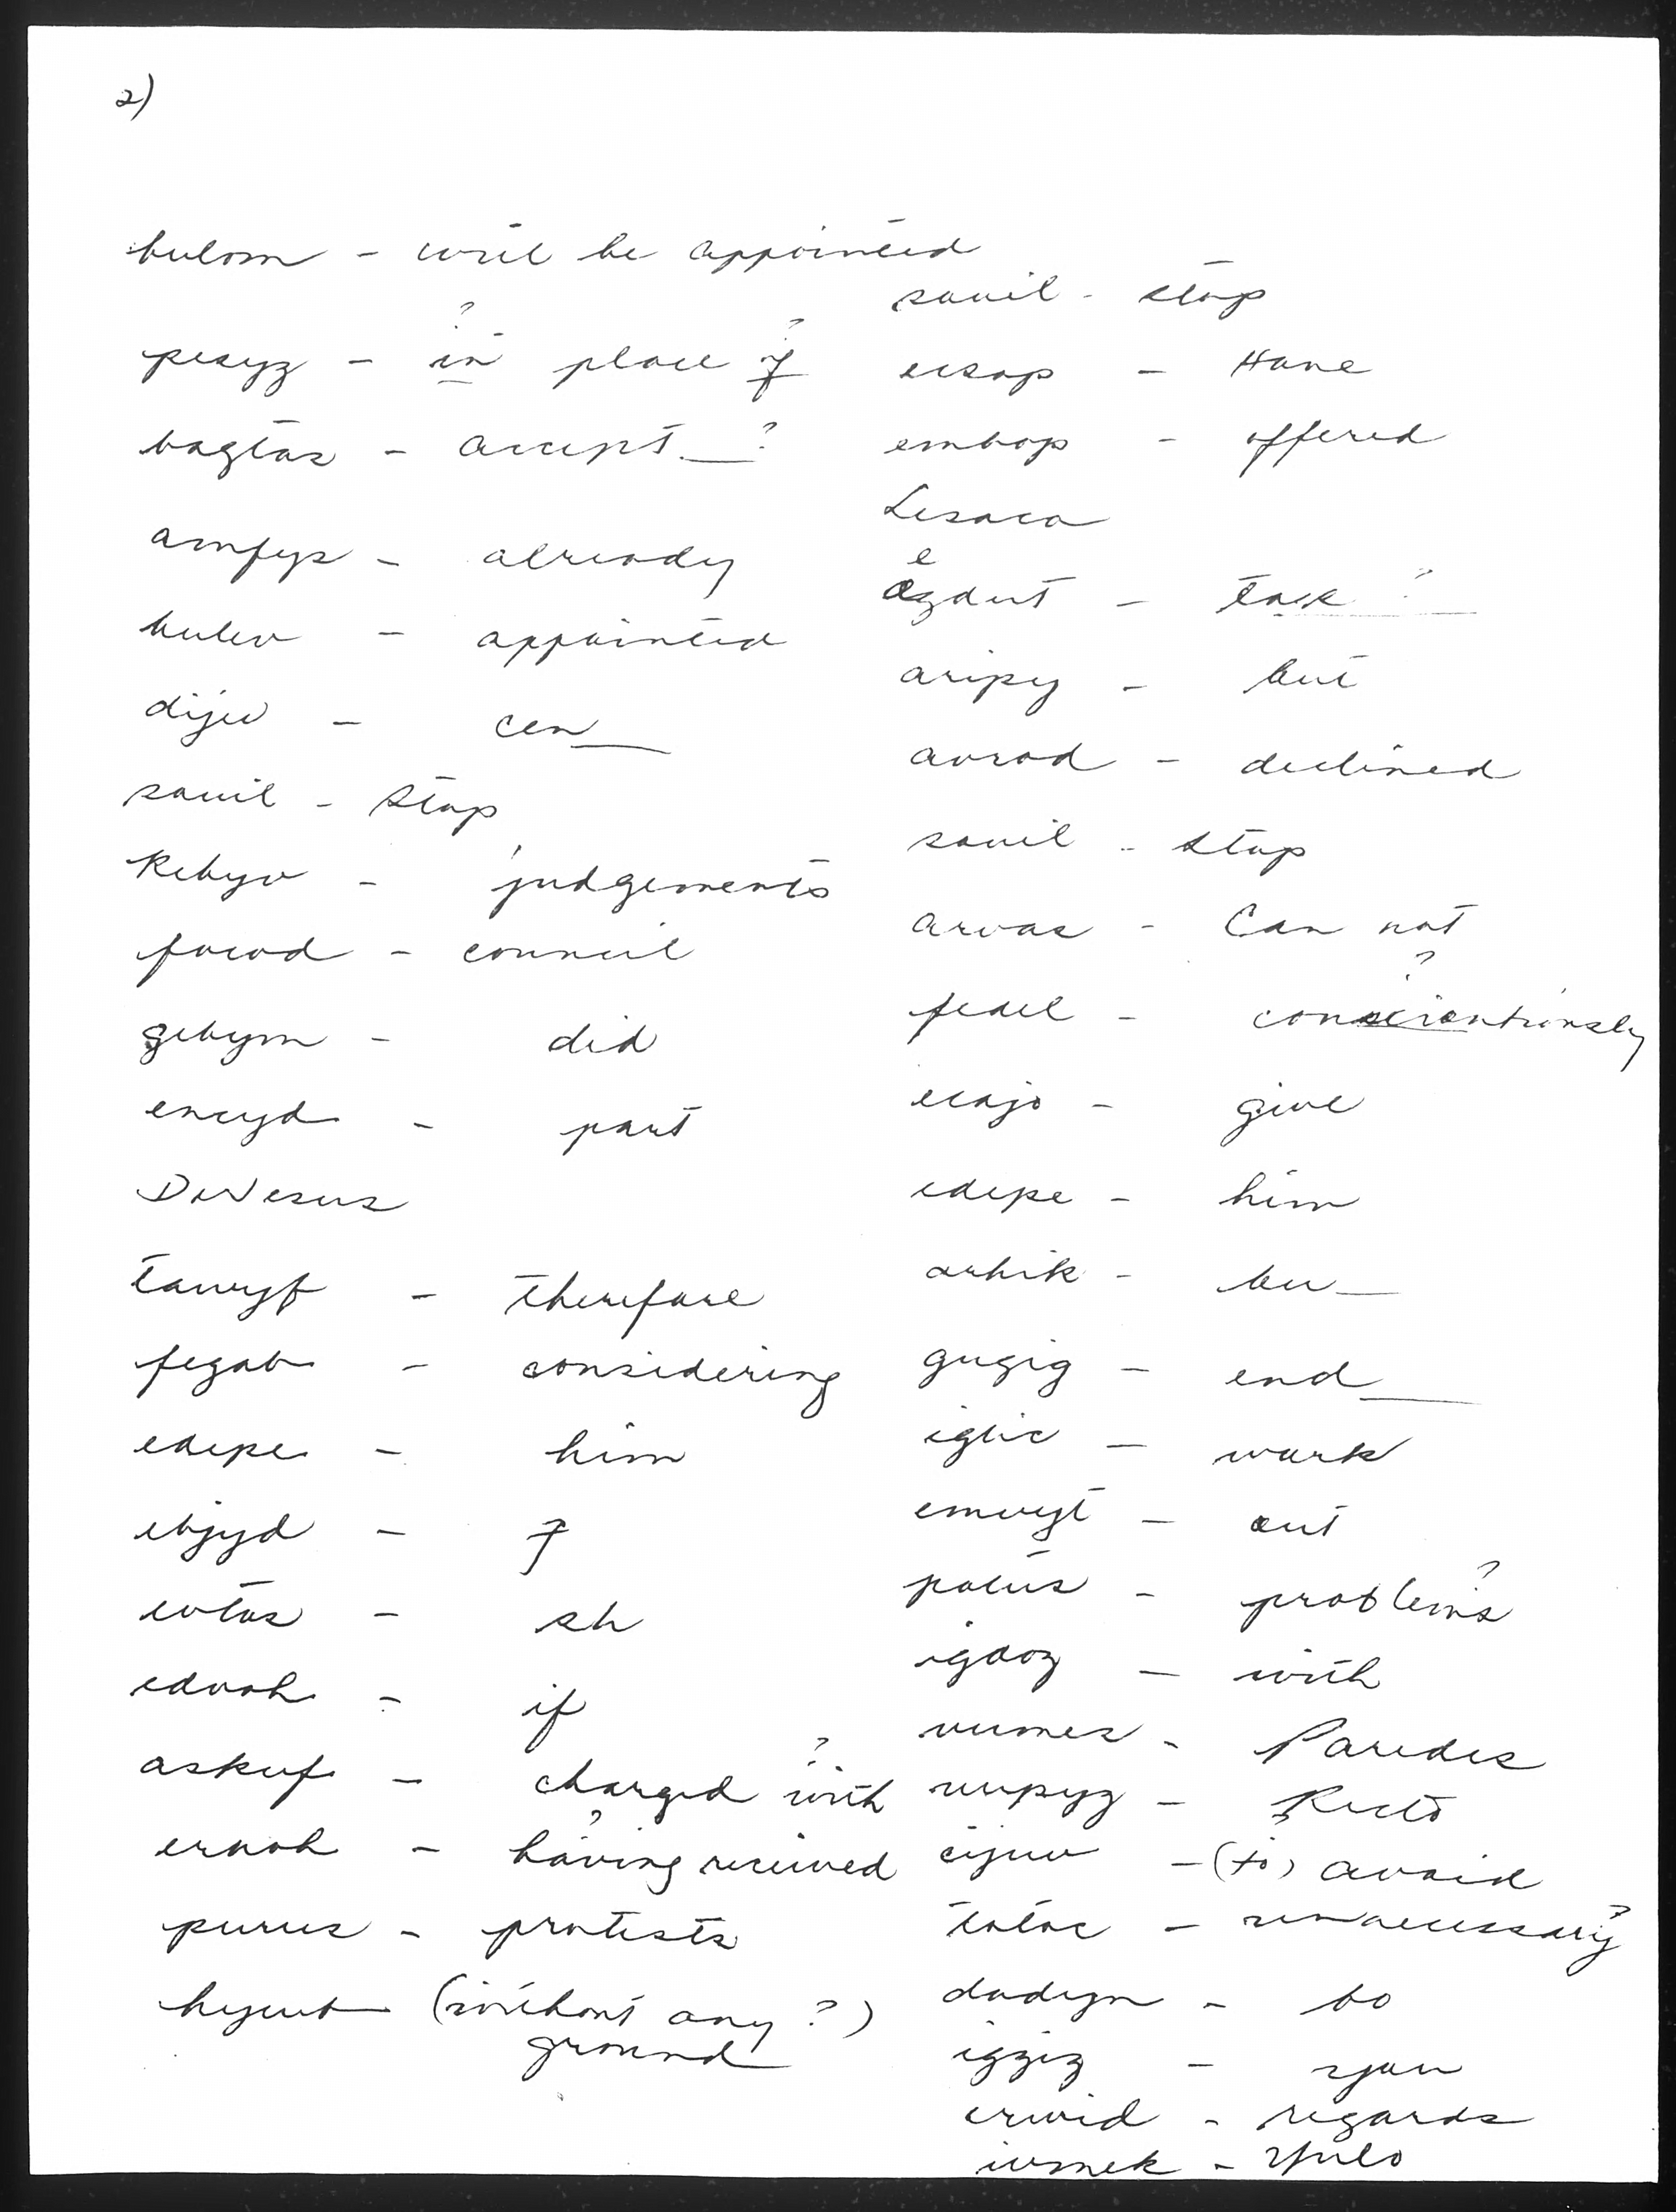 2)
bulom - will be appointed
pesyz - in place of
? ?
bagtas - accept ?
amfys - already
bulev - appointed
dijev - cen
sauil - stop
Rebyv - judgements
focod - council
gebym - did
encyd - part
DeJesus
tawyf - therefore
fegab - considering
edepe - him
ebjyd - f
evtas - sh
edvoh - if
askuf - charged with ?
ernoh - having received
?
purus - protests
hycub (without any ?)
ground
sauil - stop
ecsop - Have
embop - offered
Lesaca
e
azdut - task ?
aripy - but
avrod - declined
sauil - stop
arvas - Can not
?
fedel - conscientiously
ecajo - give
edepe - him
arhik - bu
gugig - end
iglic - work
emvyt - out
potus - problems
?
igdoz - with
vumes - Paredes
rupyz - Recto
cijuv - (to) avoid
totac - unnecessary
?
dodyn - to
igziz - you
eruid - regards
ivmek - Yulo